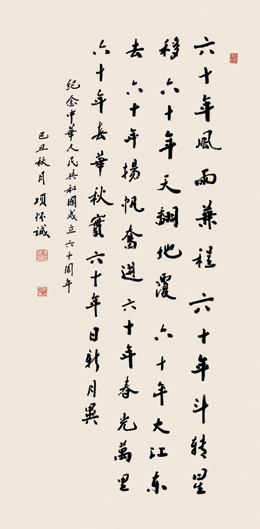 六十年風雨兼程六十年斗轉星
移六十年天翻地覆六十年大江東
去六十年揚帆奮進六十年春光萬里
六十年春華秋實六十年日新月異
紀念中華人民共和國成立六十周年
己丑秋月項怀诚